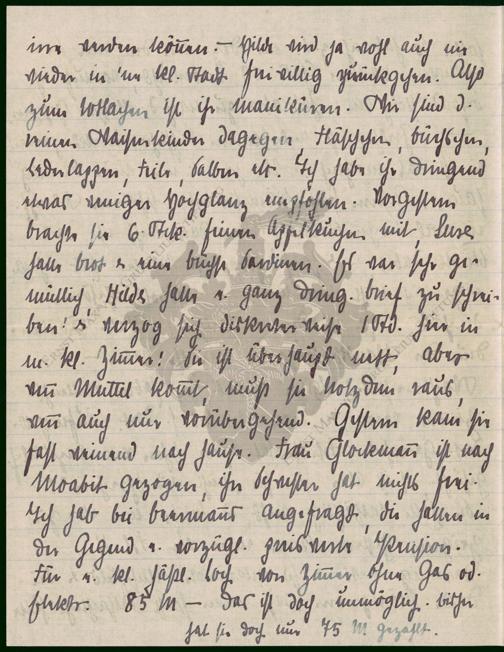 irre werden können. – Hilde wird ja wohl auch nie
wieder in 'ne kl. Stadt freiwillig zurückgehen. Also
zum totlachen ist ihr maniküren. Wir sind d.
reinen Waisenkinder dagegen, Fläschchen, büchschen,
Lederlappen, Feile Salben etc. Ich habe ihr dringend
etwas weniger Hochglanz empfohlen. Vorgestern
brachte sie 6 Stk. feinen Appelkuchen mit, Suse
hatte brot & eine büchse Sardinen. Es war sehr ge-
mütlich, Hilde hatte e. ganz dring. brief zu schrei-
ben! & verzog sich diskreterweise 1 Std. hier in
m. kl. Zimmer! Sie ist überhaupt nett, aber
wenn Muttel kommt, muß sie trotzdem raus,
wenn auch nur vorübergehend. Gestern kam sie
fast weinend nach hause. Frau Glockmann ist nach
Moabit gezogen, ihre Schwester hat nichts frei.
Ich hab bei beermanns angefragt, die hatten in
der Gegend e. vorzügl. preiswerte Pension.
Für e. kl. häßl. Loch von Zimmer ohne Gas od.
Elektr. 85 M – das ist doch unmöglich. bisher
hat sie doch nur 75 M gezahlt.